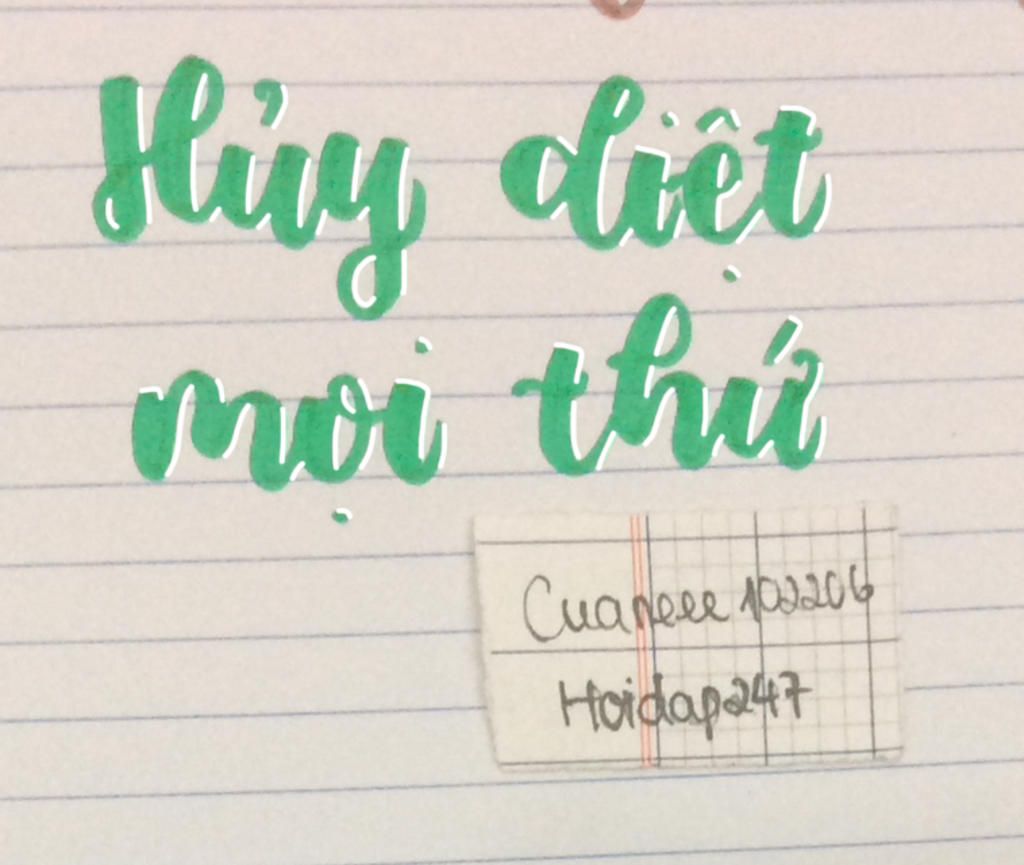 Hủy diệt
mọi thứ
Cuaneee102206
Hoidap247